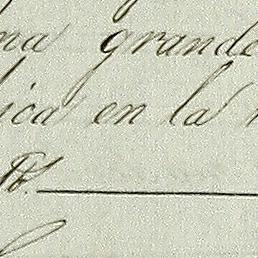 ma grande
ica en la